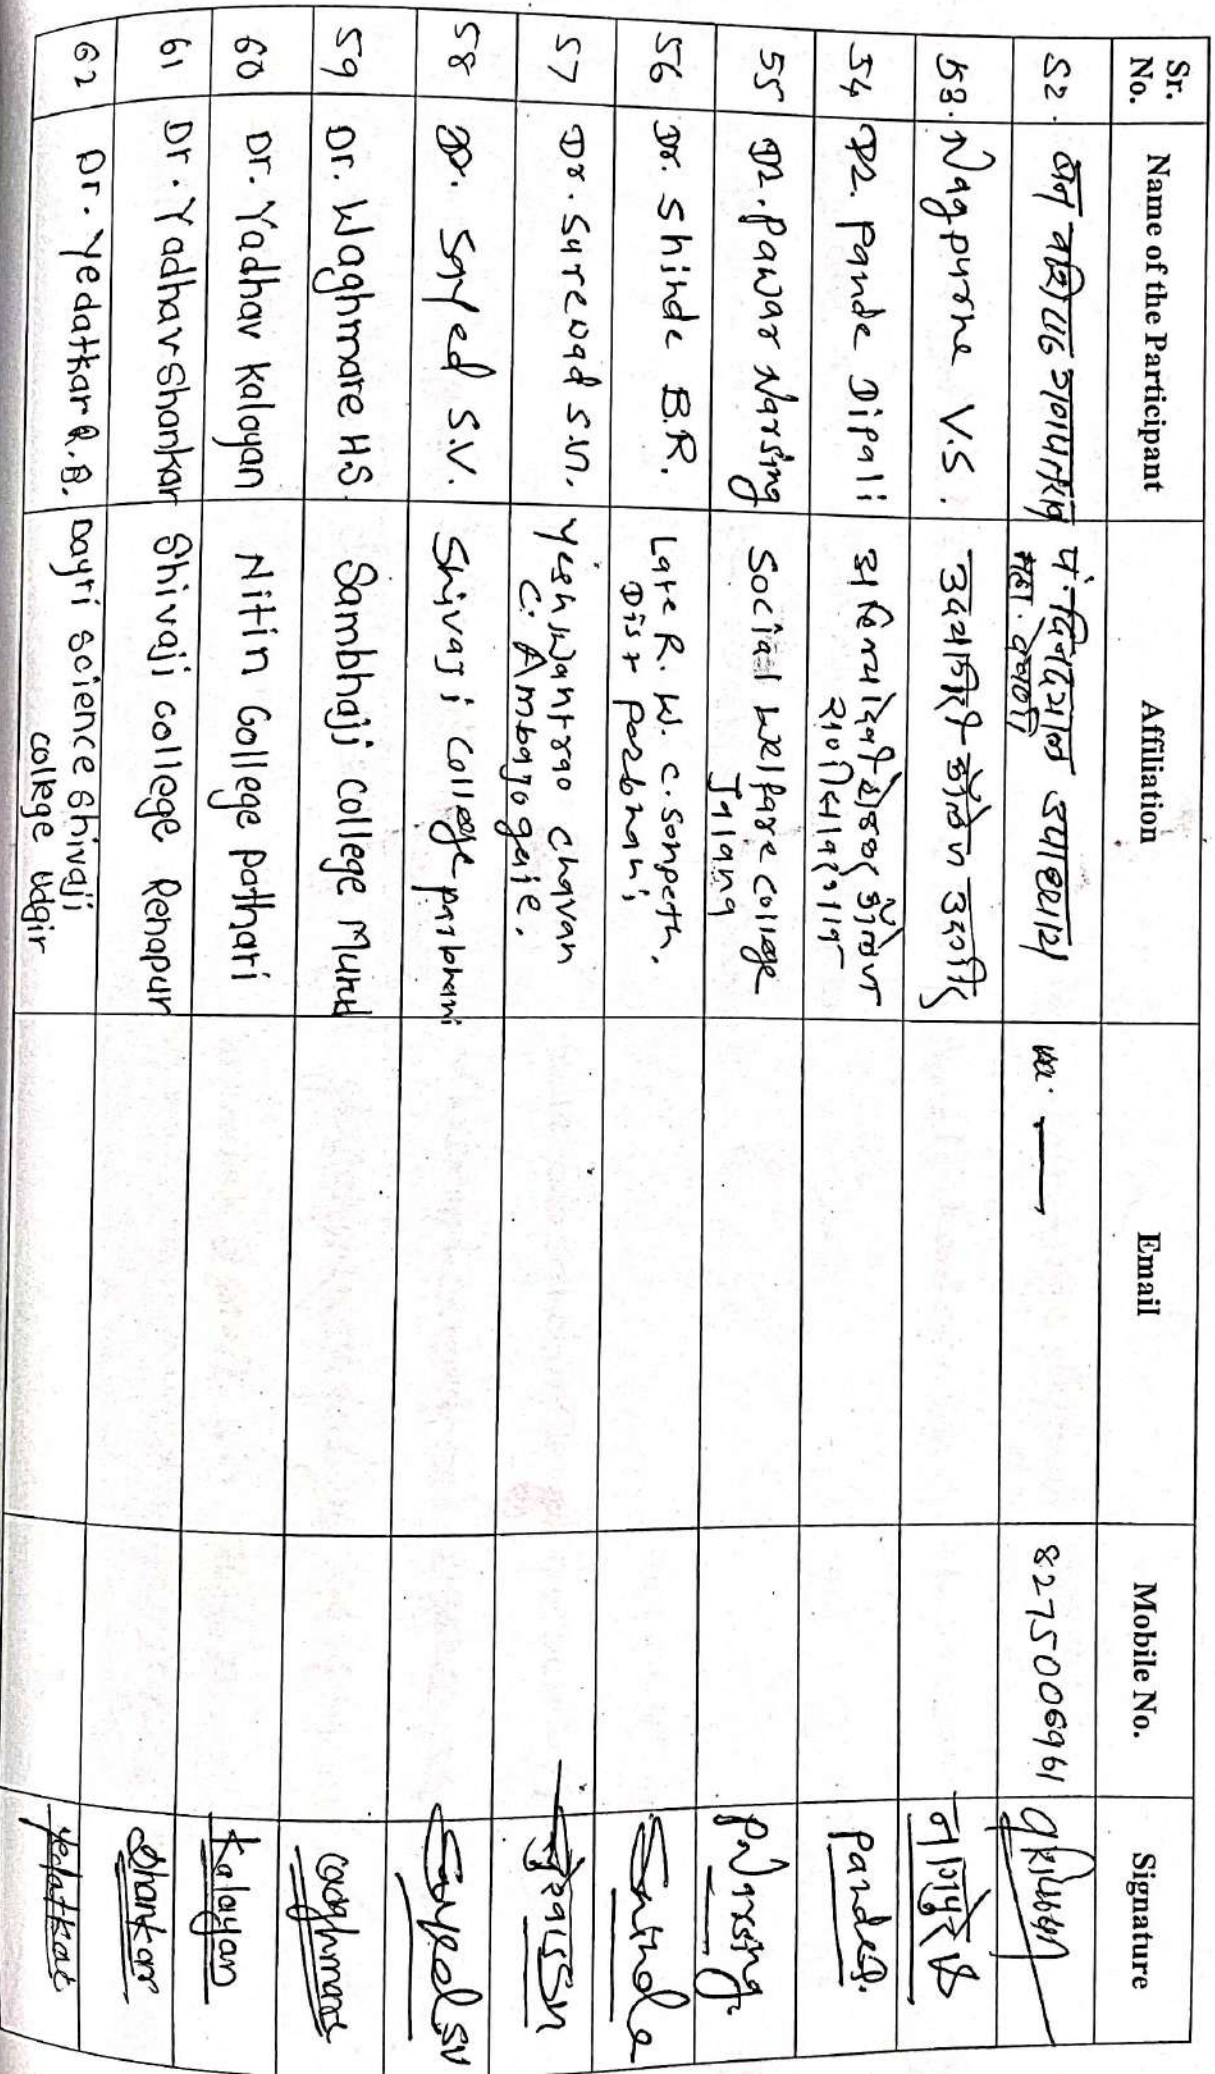 Sr. No. Name of the Participant Affiliation Email Mobile No. Signature
52. पं. दिनदयाल उपाध्याय 8275006961
महा.
53. Nagpurne V.S. उदयगिरी कॉलेज उदगीर नागपुर्णे
54 Dr. Pande Dipali अहिल्यादेवी होळकर कॉलेज Pande
राणीसावरगाव
55 Dr. Pawar Narsing Social Welfare college PNarsing
Jalana
56 Dr. Shinde B.R. Late R. W. C. Sonpeth, Shinde
Dist Parbhani
57 Dr. Surewad S.N. Yeshwantrao Chavan
C. Ambajogaie.
58 Dr. Sayyed S.V. Shivaji College parbhani Sayyed SV
59 Dr. Waghmare HS. Sambhaji College Murud Waghmare
60 Dr. Yadhav Kalayan Nitin College Pathari Kalayan
61 Dr. Yadhav Shankar Shivaji college Renapur Shankar
62 Dr. Yedatkar R.B. Dayri science Shivaji Yedatkar
college Udgir